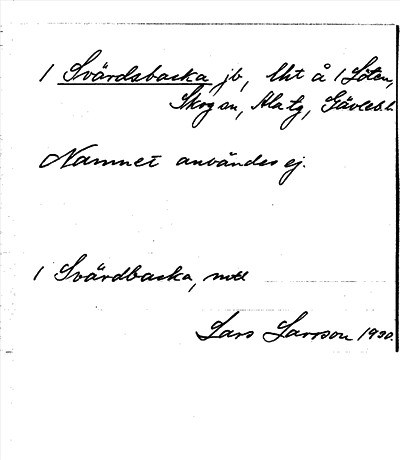 1 Svärdsbacka, jb, lht å 1 Löten,
Skog sn, Ala tg, Gävleb. l.
Namnet användes ej.
1 Svärdbacka, notl
Lars Larsson 1930.